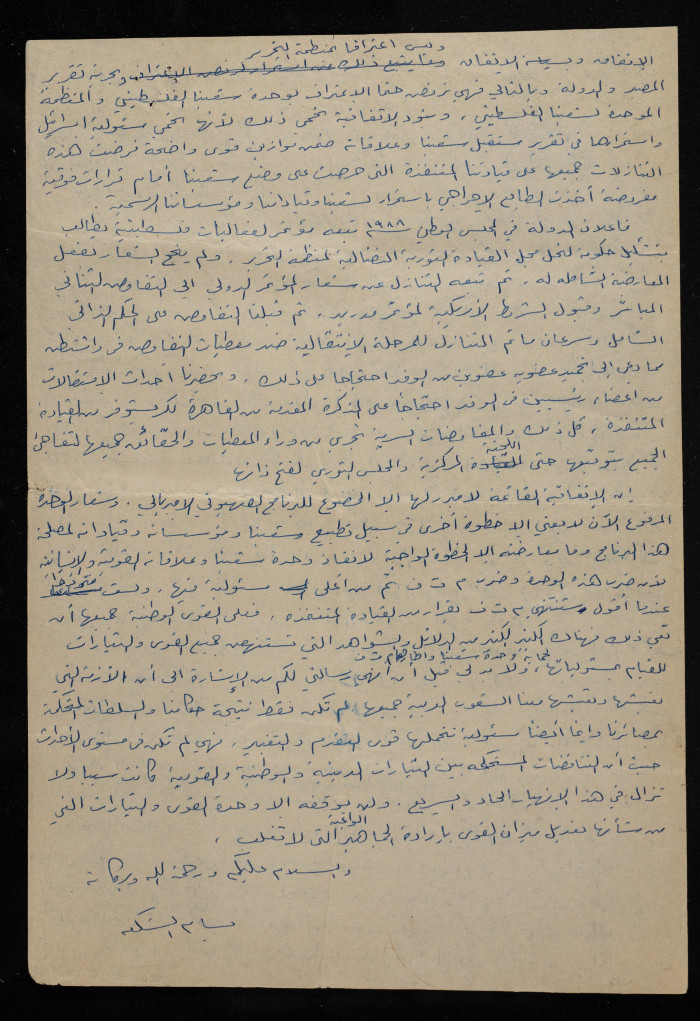 وليس اعترافا بمنظمة التحرير
الاتفاق وليس الاتفاق وما يتبع ذلك من استمرار لرفض الاعتراف وبحرية تقرير
المصير والدولة وبالتالي فهي ترفض حقا الاعتراف بوحدة شعبنا الفلسطيني والمنظمة
الموحدة لشعبنا الفلسطيني، وبنود الاتفاقية تحمي ذلك لأنها تحمي مسئولية اسرائيل
واستمرارها في تقرير مستقبل شعبنا وعلاقاته ضمن موازين قوى واضحة فرضت هذه
التنازلات جميعها على قيادتنا المتنفذة التي حرصت على وضع شعبنا أمام قرارات فوقية
مفروضة أخذت الطابع الإجرائي باستمرار لشعبنا وقياداتنا ومؤسساتنا الرسمية.
فاعلان الدولة في المجلس الوطني ١٩٨٨ تبعه مؤتمر لفعاليات فلسطينية يطالب
بتشكيل حكومة لتحل محل القيادة الثورية النضالية لمنظمة التحرير. ولم ينجح الشعار بفعل
المعارضة الشاملة له، ثم تبعه التنازل عن شعار المؤتمر الدولي الى التفاوض الثنائي
المباشر وقبول الشروط الأمريكية لمؤتمر مدريد، ثم قبلنا التفاوض على الحكم الذاتي
الشامل وسرعان ما تم التنازل للمرحلة الإنتقالية ضمن معطيات التفاوض في واشنطن
مما دعى إلى تجميد عضوية عضوين من الوفد احتجاجا على ذلك، وبحضرنا أحداث الاستقالات
من اعضاء رئيسيين في الوفد احتجاجاً على المذكرة المقدمة من القاهرة لكريستوفر من القيادة
المتنفذة، كل ذلك والمفاوضات السرية تجري من وراء المعطيات والحقائق جميعها لتفاجئ
الجميع بتوقيعها حتى اللجنة المركزية والمجلس الثوري لفتح ذاتها
إن الإتفاقية القائمة لا مبرر لها إلا الخضوع للبرنامج الصهيوني الامبريالي. وشعار الوحدة
المرفوع الآن لا يعني إلا خطوة أخرى في سبيل تطبيع شعبنا ومؤسساته وقياداته لمصلحة
هذا البرنامج وما معارضته إلا الخطوة الواجبة لانقاذ وحدة شعبنا وعلاقاته القومية والإنسانية
لأن ضرب هذه الوحدة وضرب م ت ف تم من أعلى مسئولية فيها، ولست متجنيا
عندما أقول ستنتهي م ت ف بقرار من القيادة المتنفذة. فعلى القوى الوطنية جميعها أن
تعي ذلك فهناك الكثير الكثير من الدلائل والشواهد التي تستنهض جميع القوى والتيارات
للقيام بمسئولياتها لحماية وحدة شعبنا واطارها م ت ف، ولا بد لي قبل أن أنهي رسالتي لكم من الإشارة الى أن الأزمة التي
نعيشها وتعيشها معنا الشعوب العربية جميعها لم تكن فقط نتيجة حكامنا والسلطات المتحكمة
بمصائرنا وإنما أيضا مسئولية تتحملها قوى التقدم والتغيير، فهي لم تكن في مستوى الأحداث
حيث أن التناقضات المستحكمة بين التيارات الدينية والوطنية والقومية كانت سببا ولا
تزال في هذا الانهيار الحاد والسريع. ولن يوقفه إلا وحدة القوى والتيارات التي
من شأنها تعديل ميزان القوى بإرادة الجماهير الواعية التي لا تغلب.
والسلام عليكم ورحمة الله وبركاته
بسام الشكعه